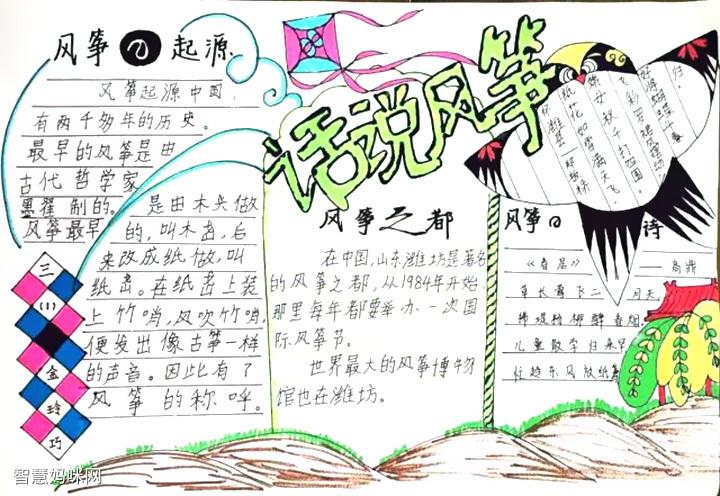 话说风筝
风筝の起源
风筝起源中国，
有两千多年的历史。
最早的风筝是由
古代哲学家
墨翟制的。
风筝最早
是由木头做
的，叫木鸢，后
来改成纸做，叫
纸鸢。在纸鸢上装
上竹哨，风吹竹哨，
便发出像古筝一样
的声音。因此有了
风筝的称呼。
三
(1)
金
玲
巧
风筝之都
在中国，山东潍坊是著名
的风筝之都，从1984年开始，
那里每年都要举办一次国
际风筝节。
世界最大的风筝博物
馆也在潍坊。
怀潍县 郑板桥
纸花如雪满天飞
娇女秋千打四围。
彩罗裙风摆动
好将蝴蝶斗春
归。
风筝の诗
《春居》 高鼎
草长莺飞二月天
拂堤杨柳醉春烟
儿童散学归来早
忙趁东风放纸鸢
智慧妈咪网